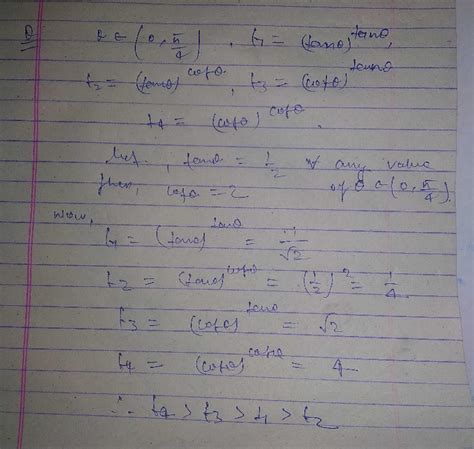 Q θ ∈ (0, π/4), t₁ = (tanθ)^tanθ,
t₂ = (tanθ)^cotθ, t₃ = (cotθ)^tanθ
t₄ = (cotθ)^cotθ.
Let, tanθ = 1/2 ∀ any value of θ ∈ (0, π/4).
then, cotθ = 2
now,
t₁ = (tanθ)^tanθ = 1/√2
t₂ = (tanθ)^cotθ = (1/2)^2 = 1/4.
t₃ = (cotθ)^tanθ = √2
t₄ = (cotθ)^cotθ = 4
∴ t₄ > t₃ > t₁ > t₂